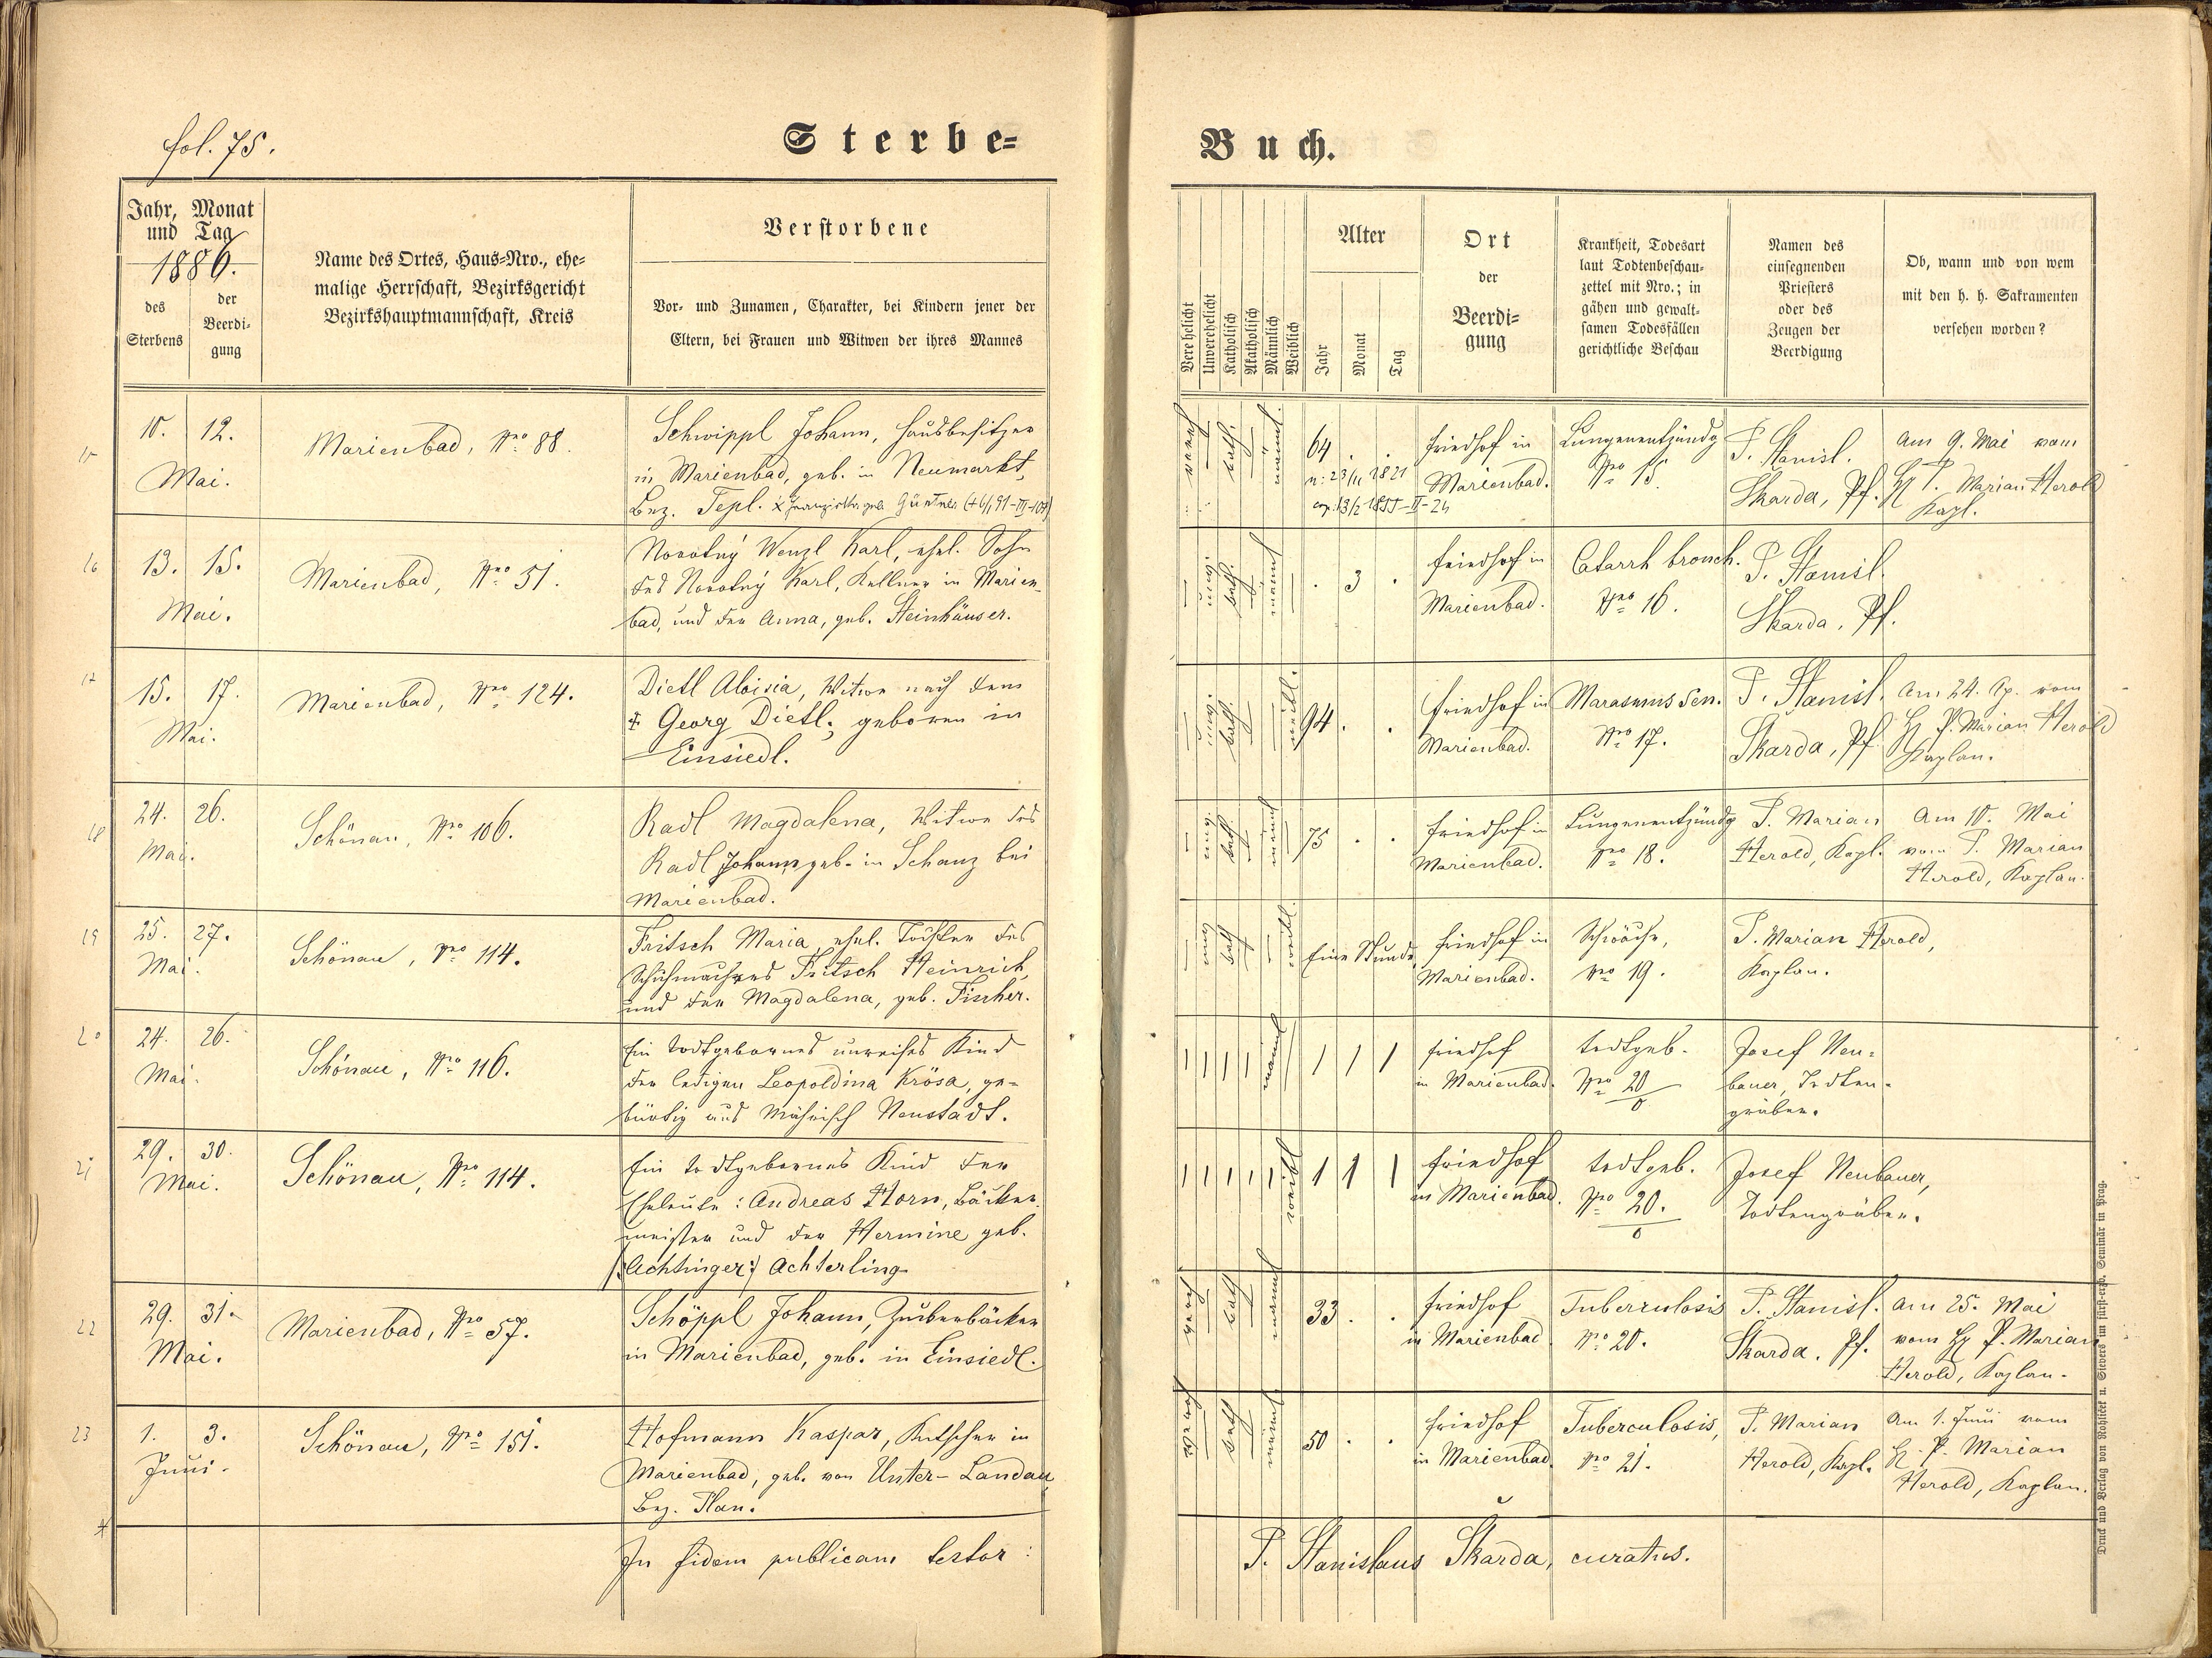 fol. 75.
Sterbe=
Buch.
Jahr, Monat
und Tag
1886.
des
Sterbens
der
Beerdi=
gung
Name des Ortes, Haus=Nro., ehe=
malige Herrschaft, Bezirksgericht
Bezirkshauptmannschaft, Kreis
Verstorbene
Vor= und Zunamen, Charakter, bei Kindern jener der
Eltern, bei Frauen und Witwen der ihres Mannes
Verehelicht
Unverehelicht
Katholisch
Akatholisch
Männlich
Weiblich
Alter
Jahr
Monat
Tag
Ort
der
Beerdi=
gung
Krankheit, Todesart
laut Todtenbeschau=
zettel mit Nro.; in
gähen und gewalt=
samen Todesfällen
gerichtliche Beschau
Namen des
einsegnenden
Priesters
oder des
Zeugen der
Beerdigung
Ob, wann und von wem
mit den h. h. Sakramenten
versehen worden?
15
10. 12.
Mai.
Marienbad, Nro 88.
Schwippl Johann, Hausbesitzer
in Marienbad, geb. in Neumarkt,
Bez. Tepl. x Franziska geb. Güntner (+6/1 91-III-107)
vereh
kath.
männl.
64 . .
n: 23/11 1821
cop. 13/2 1855-II-24
Friedhof in
Marienbad.
Lungenentzündg
Nro 15.
P. Stanisl.
Skarda, Pf.
Am 9. Mai vom
H. P. Marian Herold
Kapl.
16
13. 15.
Mai.
Marienbad, Nro 51.
Novotný Wenzl Karl, ehel. Sohn
des Novotný Karl, Kellner in Marien-
bad, und der Anna, geb. Steinhäuser.
unv.
kath.
männl
. 3 .
Friedhof in
Marienbad.
Catarrh bronch.
Nro 16.
P. Stanisl.
Skarda, Pf.
17
15. 17.
Mai.
Marienbad, Nro 124.
Dietl Aloisia, Witwe nach dem
+ Georg Dietl, geboren in
Einsiedl.
kath.
weibl.
94 . .
Friedhof in
Marienbad.
Marasmus sen.
Nro 17.
P. Stanisl.
Skarda, Pf.
Am 24. Ap. vom
H. P. Marian Herold
Kaplan.
18
24. 26.
Mai.
Schönau, Nro 106.
Radl Magdalena, Witwe des
Radl Johann, geb. in Schanz bei
Marienbad.
kath.
75 . .
Friedhof in
Marienbad.
Lungenentzündg
Nro 18.
P. Marian
Herold, Kapl.
Am 10. Mai
vom P. Marian
Herold, Kaplan.
19
25. 27.
Mai.
Schönau, Nro 114.
Fritsch Maria, ehel. Tochter des
Schuhmachers Fritsch Heinrich,
und der Magdalena, geb. Fischer.
unv
kath
weibl.
Eine Stunde
Friedhof in
Marienbad.
Schwäche,
Nro 19.
P. Marian Herold,
Kaplan.
20
24. 26.
Mai.
Schönau, Nro 116.
Ein todtgebornes unreifes Kind
der ledigen Leopoldina Krösa, ge-
bürtig aus Mährisch Neustadt.
männl
Friedhof
in Marienbad.
todtgeb.
Nro 20/0
Josef Neu=
bauer, Todten-
gräber.
21
29. 30.
Mai.
Schönau, Nro 114.
Ein todtgebornes Kind der
Eheleute: Andreas Horn, Bäcker-
meister und der Hermine geb.
/:Achtinger:/ Achterling
weibl
Friedhof
in Marienbad.
todtgeb.
Nro 20./0
Josef Neubauer,
Todtengräber.
22
29. 31.
Mai.
Marienbad, Nro 57.
Schöppl Johann, Zuckerbäcker
in Marienbad, geb. in Einsiedl.
vereh
kath
männl
33 . .
Friedhof
in Marienbad
Tuberculosis
Nro 20.
P. Stanisl.
Skarda, Pf.
Am 25. Mai
vom H. P. Marian
Herold, Kaplan.
23
1. 3.
Juni.
Schönau, Nro 151.
Hofmann Kaspar, Kutscher in
Marienbad, geb. von Unter-Landau,
Bez. Plan.
vereh
kath
männl
50 . .
Friedhof
in Marienbad.
Tuberculosis,
Nro 21.
P. Marian
Herold, Kapl.
Am 1. Juni vom
H. P. Marian
Herold, Kaplan.
In fidem publicam testor:
P. Stanislaus Škarda, curatus.
Druck und Verlag von Rohliček u. Sievers im fürst-erzb. Seminär in Prag.